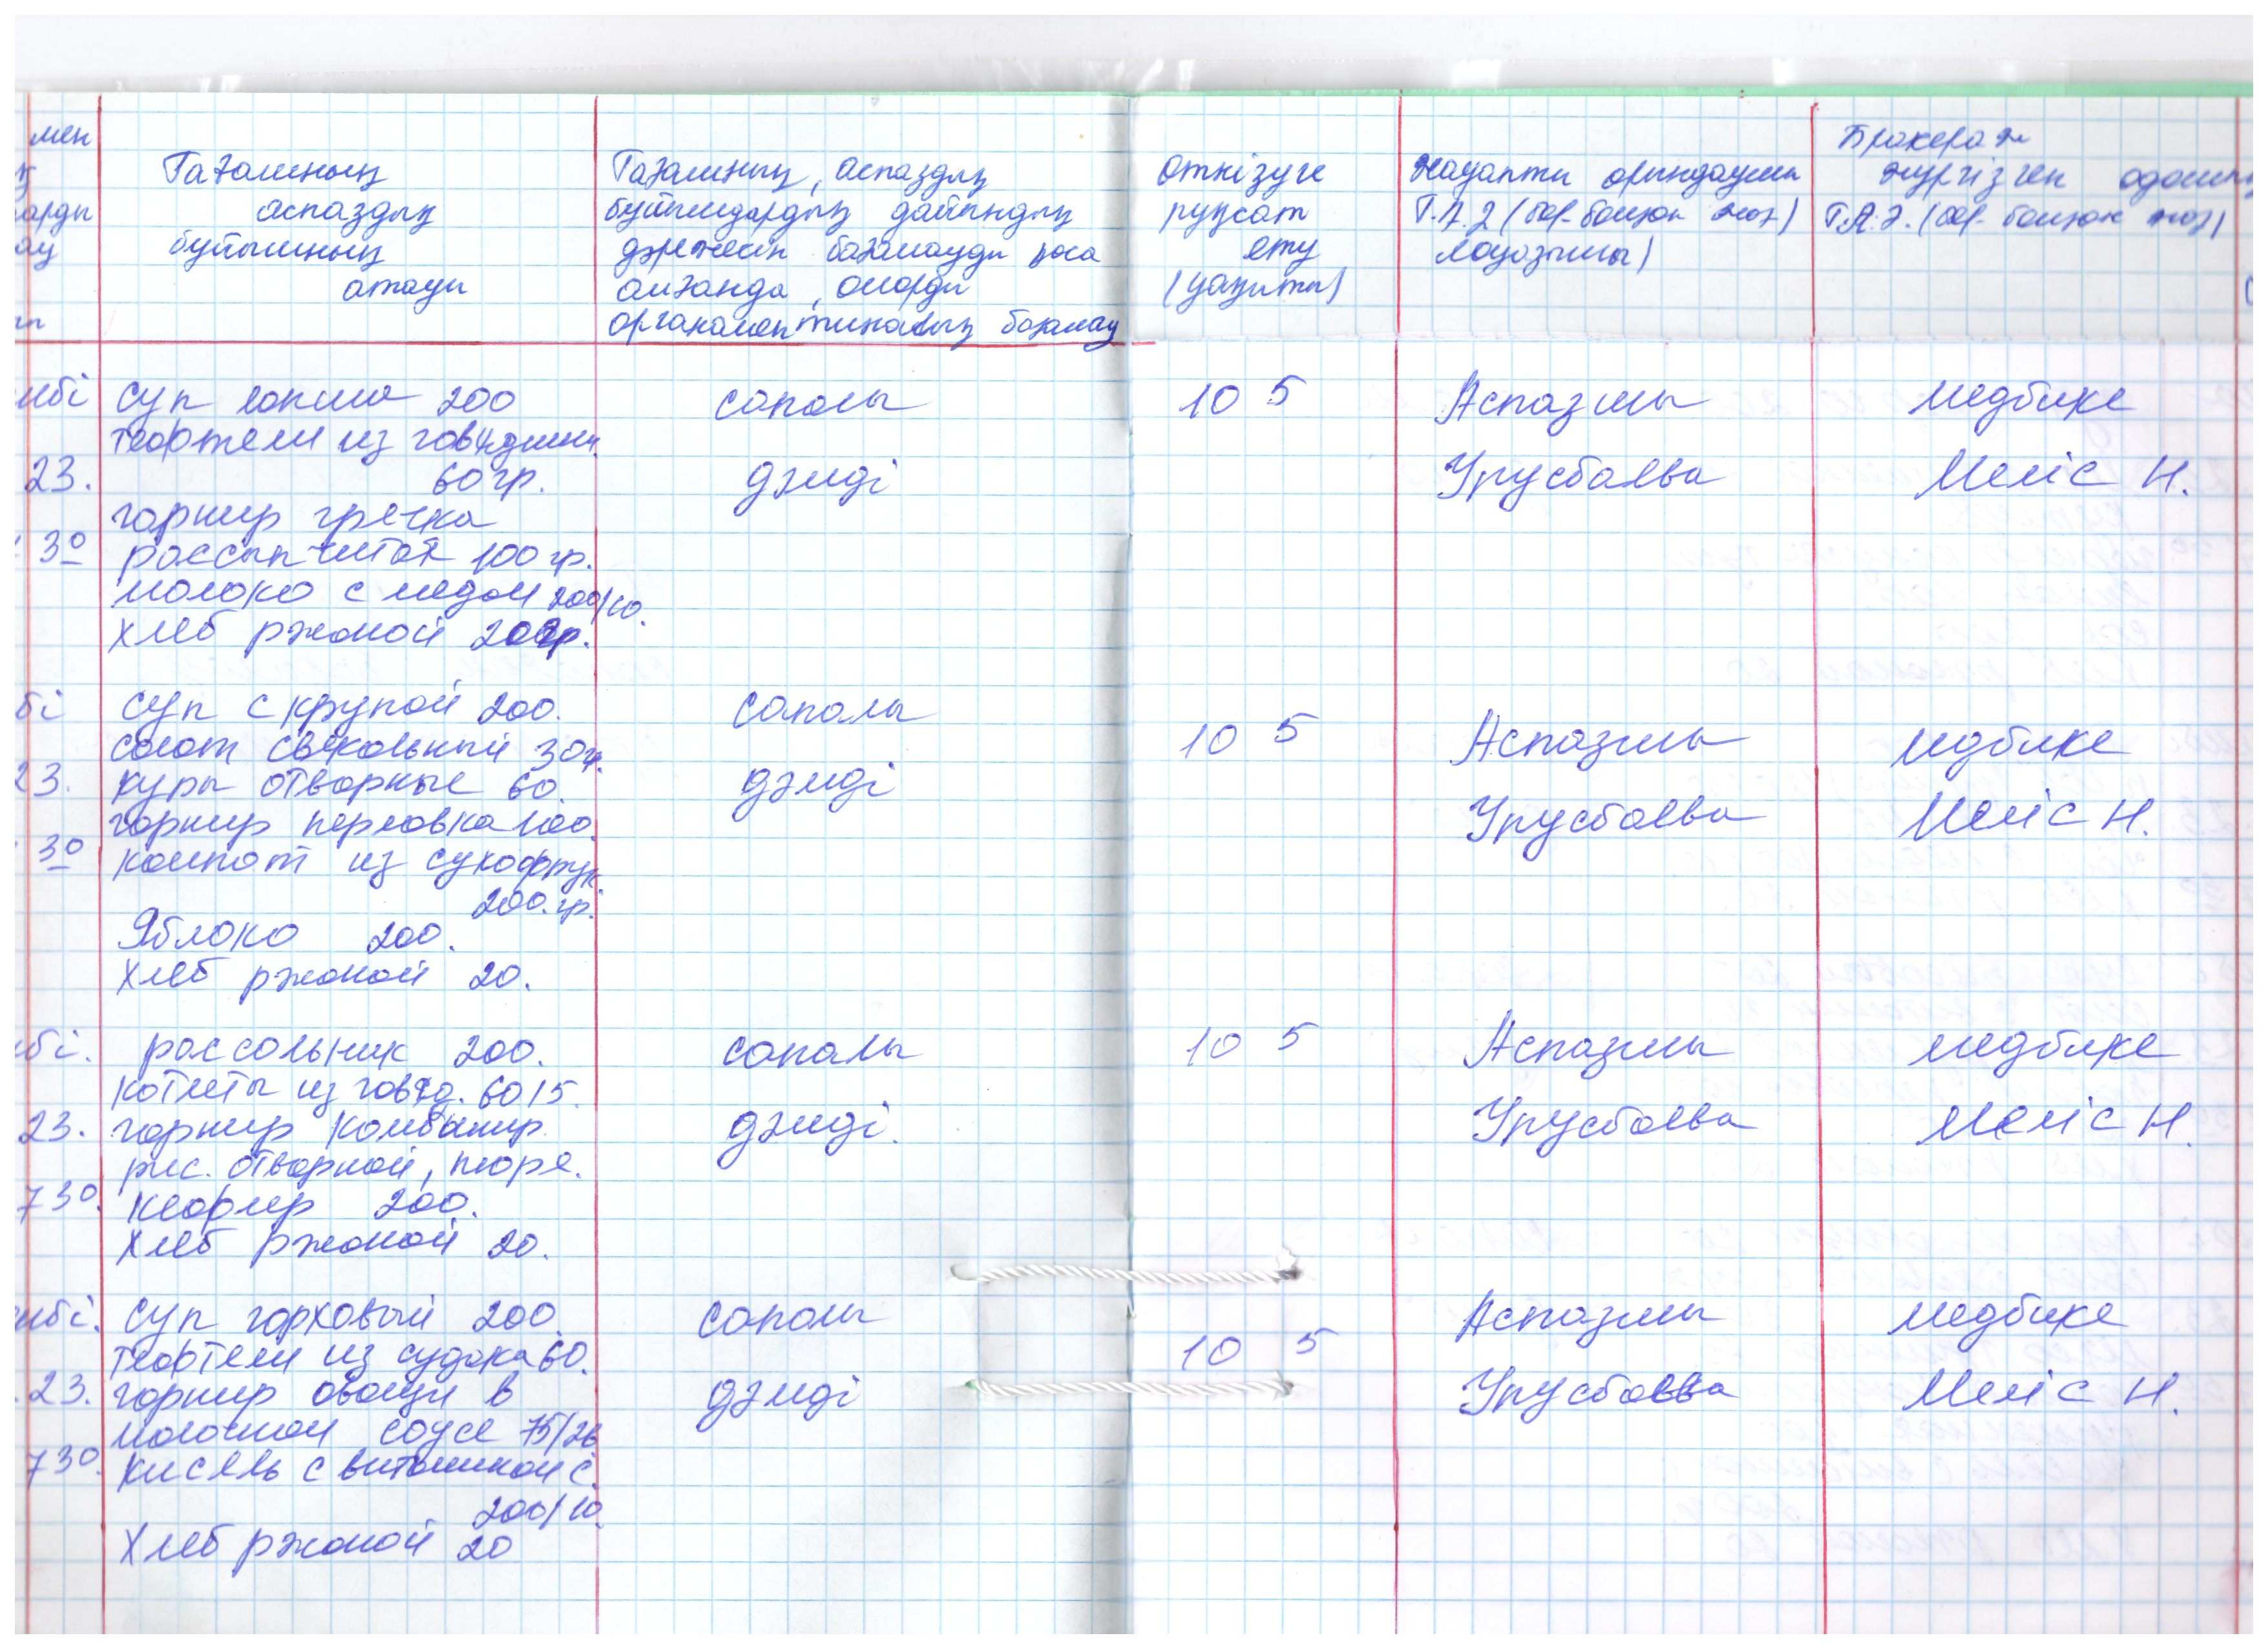 мен
Тағамның
аспаздық
бұйымның
атауы
арды
ау
Тағамның, аспаздық
бұйымдардың дайындық
дәрежесін бағалауды қоса
алғанда, оларды
органолептикалық бағалау
Өткізуге
рұқсат
ету
(уақыты)
Жауапты орындаушы
Т.А.Ә (бар болған жағ)
лауазымы)
Бракераж
жүргізген адамның
Т.А.Ә. (бар болған жағ)
суп лапша 200
тефтели из говядины
60 гр.
гарнир гречка
рассыпчатая 100 гр.
молоко с медом 200/10.
хлеб ржаной 20гр.
23.
30
сапалы
дәмді
10 5
Аспазшы
Урусбаева
медбике
Меліс Н.
суп с крупой 200.
салат свекольный 30гр.
куры отварные 60.
гарнир перловка 100.
компот из сухофрук
200.гр.
Яблоко 200.
хлеб ржаной 20.
бі
23.
30
сапалы
дәмді
10 5
Аспазшы
Урусбаева
медбике
Меліс Н.
рассольник 200.
котлеты из говяд. 60/5.
гарнир комбинир.
рис. отварной, пюре.
кефир 200.
хлеб ржаной 20.
бі.
23.
730.
сапалы
дәмді.
10 5
Аспазшы
Урусбаева
медбике
Меліс Н.
суп горховый 200.
тефтели из судака 60.
гарнир овощи в
молочном соусе 75/26
кисель с витамином С.
200/10.
Хлеб ржаной 20
23.
730.
сапалы
дәмді
10 5
Аспазшы
Урусбаева
медбике
Меліс Н.